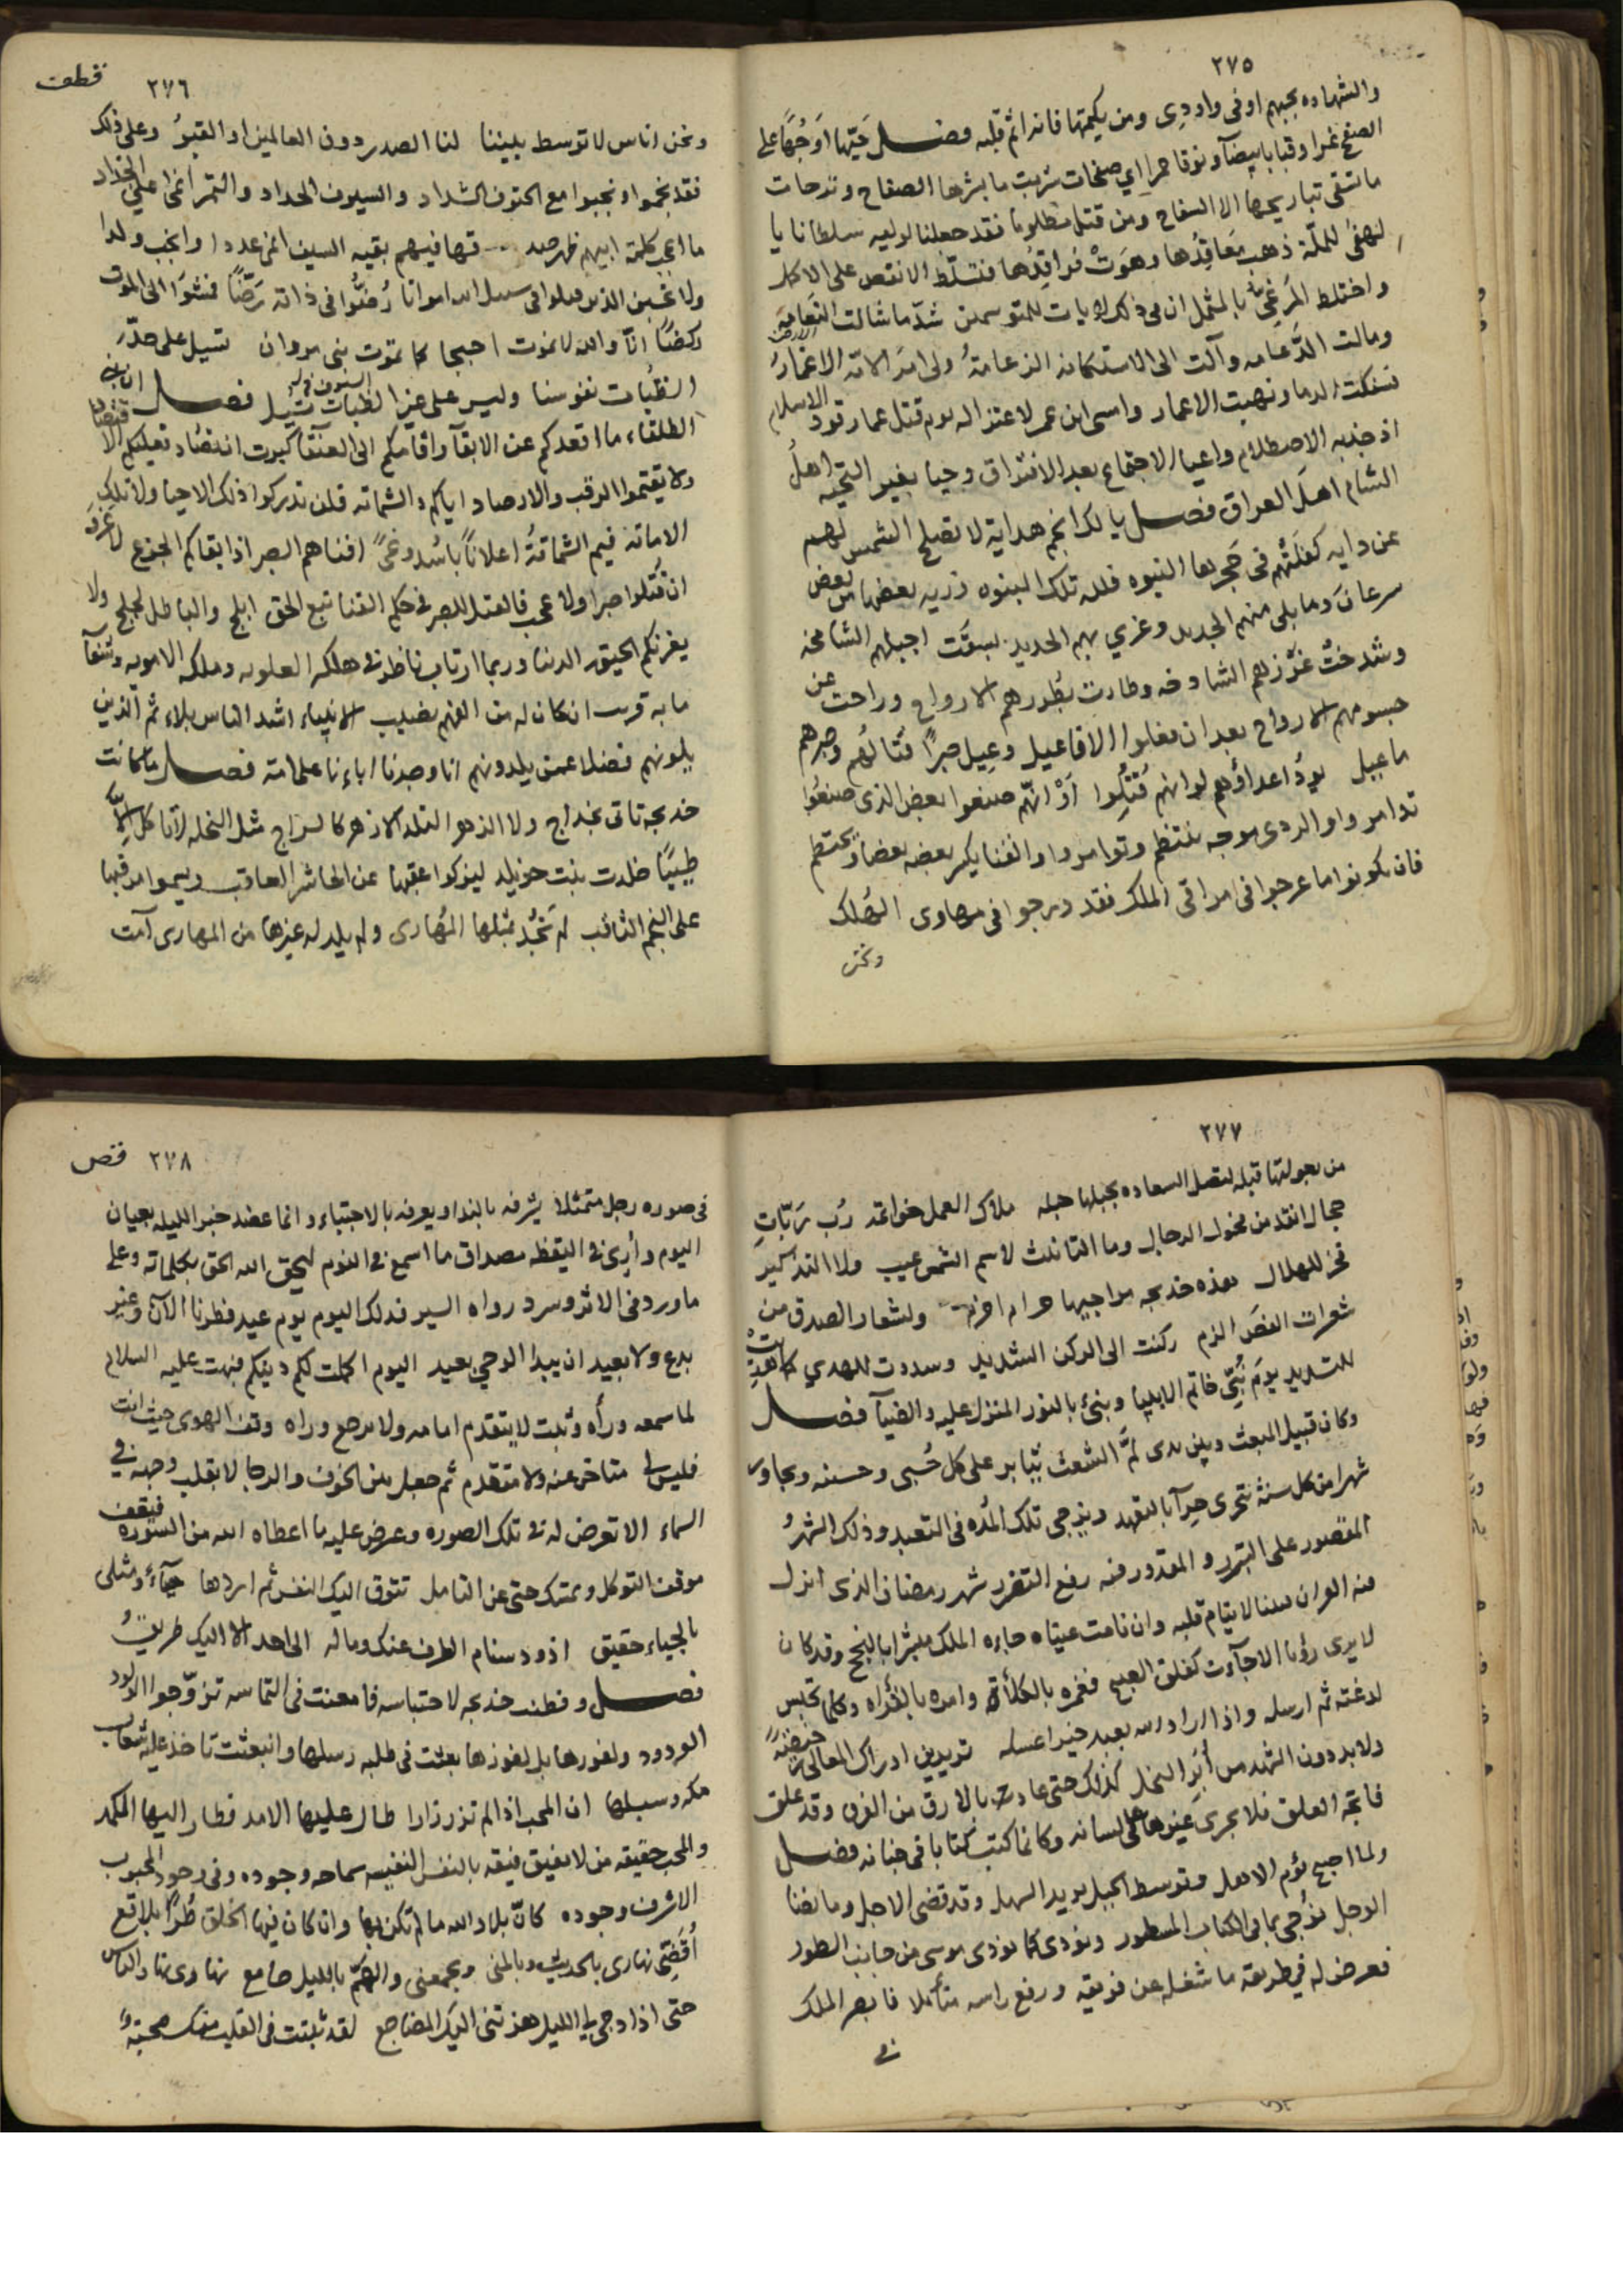 ٢٧٥
والشهاده بحبهم اوفى واودى ومن يكتمها فانه اثم قلبه فصل حيّها اوجُهًا على
الصفح غمرا وقبابا بيضآ ونوقا حمرا اي صفحات ضربت ما بشرها الصفاح ونرحات
ما تشقى تباريحها الا السفاح ومن قتل مظلوما فقد جعلنا لوليه سلطانا يا
لهفى للملّة ذهب مَعَاقِدُها وهوَتْ فراقِدُها فتسلّط الانقص على الاكمل
واختلط المرعي بالهمل ان في ذلك لايات للمتوسمين شدّ ما شالت النعامه
ومالت الدَّعامه وآلت الى الاستكانه الزعامةُ ولى امرَ الامّه الاغمارُ
فسفكت الدما ونهبت الاعمار واسى ابن عمر لاعتزاله يوم قتل عمار قود الاسلام
اذ جذبه الاصطلام واعيا الاجتماع بعد الافتراق وحيا بغير التحيه اهلُ
الشام اهلَ العراق فصل يا لك انجم هداية لا تصلح الشمس لهم
عن دايه كفلَتهُم فى حَجرها النبوه فلله تلك البنوه ذريه بعضها من بعض
سرعانَ وما بلى منهم الجديد وغري بهم الحديد نسفَت اجبلهم الشامخه
وشدختْ غُرَرهم الشادخه وطارت بطُررهم الارواح وراحت عن
جسومهم الارواح بعد ان فعلوا الافاعيل وعيل صبرًا قتالهُم وصبرهم
ما عيل يودُّ اعداؤهم لو انهم قُتِلُوا اوْ انّهم صنعوا بعض الذى صنعُوا
تذامروا والردى موجه ينتظم وتوامروا والقنا يكسر بعضه بعضا ويحتطم
فان يكونوا ما عرجوا فى مراقى الملك فقد درجوا فى مهاوى الهُلك
ونحن
٢٧٦
قطعت
ونحن اناس لا توسط بيننا لنا الصدر دون العالمين او القبرُ وعلى ذلك
فقد نجموا ونجبوا مع الحتوف الشداد والسيوف الحداد والتمر انمى على الجداد
ما اعجب كلمة ابيهم ظهر صدقها فيهم بقيه السيف انمى عددا وانجب ولدا
ولا تحسبن الذين قتلوا فى سبيل الله امواتا رُضّوا فى ذاته رَضًّا فمشوا الى الموت
ركضًا انّا والله لا نموت حبجا كما تموت بنى مروان تسيل على حدّ
الظبُات نفوسنا وليس على غير الظبات تسيل فصل
الطلقاء ما اقعدكم عن الابقآ واقامكم الى العنقآ كبرت ان تصاد فعليكم الا
ولا يقتموا الرقب والارصاد اياكم والشماته فلن تدركوا ذلك الاحيا ولا تلك
الاماته فيم الشماتةُ اعلانًا باُسد وغىً افناهم الصبر اذ ابقاكم الجزع لا غرو
ان قُتلوا صبرا ولا عجب فالقتل للصبر فى حكم القنا تبع الحق ابلج والباطل لجلج ولا
يغرنكم الحيق الدنيا وربما ارتاب ناظر فى هلكه العلويه وملكه الامويه
ما به قرت ان كان له من الفهم نصيب الانبياء اشد الناس بلاء ثم الذين
يلونهم فضلا عمن يلدونهم انا وجدنا اباءنا على امة فصل ما كانت
خديجة تاتى بخداج ولا الزهرا لتلد الا زهر كالسراج مثل النخله لا تاكل الّا
طيبًا خلدت بنت خويلد ليزكوا عقبها عن الحاشر العاقب ويسموا مرقبها
على النجم الثاقب لم تَحُدْ بمثلها المهارى ولم يلد له غيرها من المهارى آمت
٢٧٧
من بعولتها قبله لتصل السعاده بحبلها حبله ملاك العمل خواتمه رُب رَبّاتِ
حجال انقد من فحول الرجال وما التانيث لاسم الشمس عيب ولا التذكير
فخر للهلال هذه خديجه من اخيها حزام احزم ولشعار الصدق من
شعرات القصَص الزم ركنت الى الركن الشديد وسددت للهدي كما هُديتْ
للتسديد يوم نُبّئ خاتم الانبيا ونبئ بالنور المنزل عليه والضيآ فصل
وكان قبيل المبعث وبين يدى لَمّ الشعث يثابر على كل حُسنى وحسنه ويجاور
شهرا من كل سنة يتحرى حرآ بالتعهد ويزجى تلك المُده فى التعبد وذلك الشهرُ
المقصور على التبرر والمقدور فيه رفع التضرر شهر رمضان الذى انزل
فيه القران فبينا لا ينام قلبه وان نامت عيناه جاءه الملك مبشرا بالنجح وقد كان
لا يرى رؤيا الا جآءت كفلق الصبح فغمره بالكلأة وامره بالقراه وكلما تحبس
لدغته ثم ارسله واذا اراد الله بعبد خيرا عسله تريدين ادراك المعالى رخيصةً
ولا بد دون الشهد من اُبَر النحل كذلك حتى عاد بالارق من الفرق وقد علق
فاتحة العلق فلا يجرى غيرها على لسانه وكانما كتبت كتابا فى جنانه فصل
ولما اجمع يؤم الاهل وتوسط الجبل يريد السهل وقد قضى الاجل وما نضا
الوجل نوجى بما فى الكتاب المسطور ونودى كما نودى موسى من جانب الطور
فعرض له في طريقه ما شغله عن فريقه ورفع راسه متأملا فابصر الملك
فى
٢٧٨
فى صوره رجل متمثلا يشرفه بالندا ويعرفه بالاجتباء وانما عضد خبر الليله بعيان
اليوم وأُرى فى اليقظه مصداق ما اسمع فى النوم ليحق الله الحق بكلماته وعلى
ما ورد فى الاثر وسرد رواه السير فذلك اليوم يوم عيد فطرنا الآن وغير
بدع ولا بعيد ان يبدا الوحي بعيد اليوم اكملت لكم دينكم فبهت عليه السلام
لما سمعه ورأه وثبت لا يتقدم امامه ولا يرجع وراه وقف الهوى حيث انت
فليس لي متاخر عنه ولا متقدم ثم جعل بين الخوف والرجا لا يقلب وجهه فى
السماء الا تعرض له فى تلك الصوره وعرض عليه ما اعطاه الله من السوره فيقف
موقف التوكل ويمسك حتى عن التامل تتوق اليك النفس ثم اردها حيآءً ومثلى
بالحياء حقيق اذود سنام الطرف عنك وماله الى احد الا اليك طريقُ
فصل وفطنت خديجه لاحتباسه فامعنت فى التماسه تزوّجوا الولود
الودود ولفورها بل لفوزها بعثت فى طلبه رسلها وانبعثت تاخذ عليه شعاب
مكه وسبلها ان المحب اذا لم تزر زارا طال عليها الامد فطار اليها الكمد
والمحب حقيقه من لا يفيق فيقه بالنفس النفيسه سماحه وجوده وفى وجود المحبوب
الاشرف وجوده كانّ بلاد الله ما لم تكن بها وان كان فيها الخلق طُرًّا بلاقع
اُقَضّى نهارى بالحديث وبالمنى ويجمعنى والهمّ بالليل جامع نهارى نهار الناس
حتى اذا دجى لي الليل هزتنى اليك المضاجع لقد ثبتت فى القلب منك محبةٌ